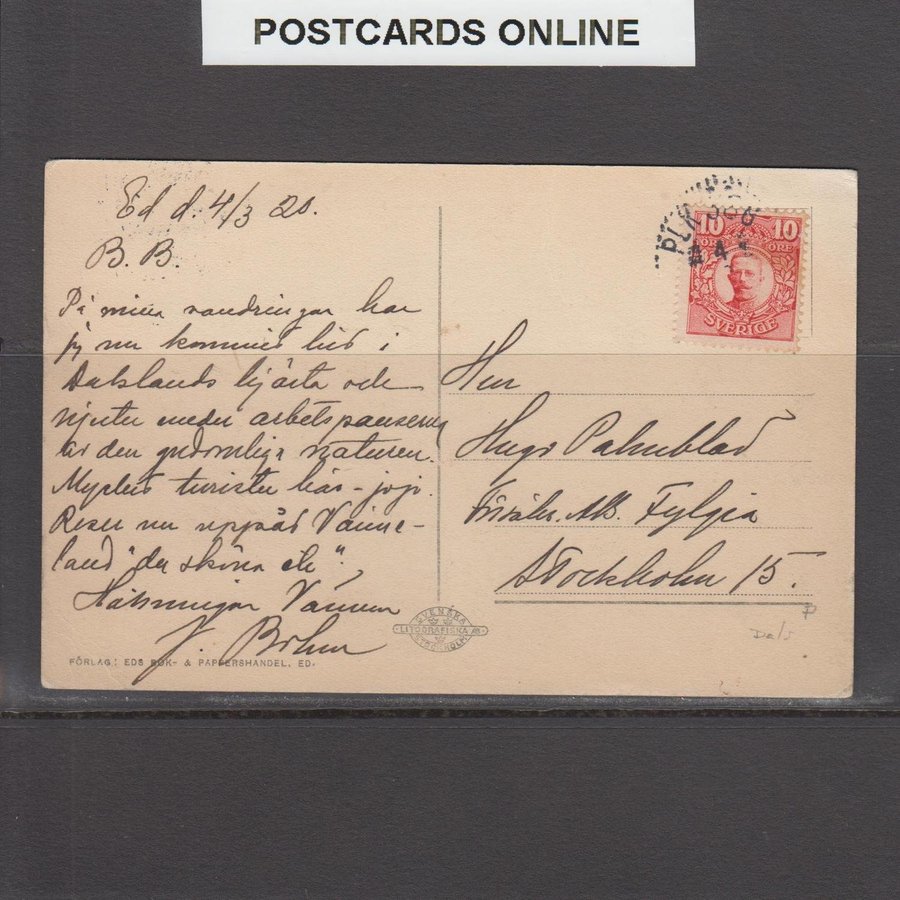 POSTCARDS ONLINE
Ed d. 4/3 20.
B. B.
På mina vandringar har
jag nu kommit hit i
Dalslands hjärta och
njuter under arbetspauserna
av den gudomliga naturen.
Mycket turister här - jojo.
Reser nu uppåt Värme-
land "du sköna etc".
Hälsningar Vännen
J. Bohm
FÖRLAG: EDS BOK- & PAPPERSHANDEL, ED.
PLK
4
10 10
ÖRE ÖRE
SVERIGE
Herr
Hugo Palmblad
AB. Fylgia
Stockholm 15.
SVENSKA
LITOGRAFISKA AB
STOCKHOLM
P
Dals